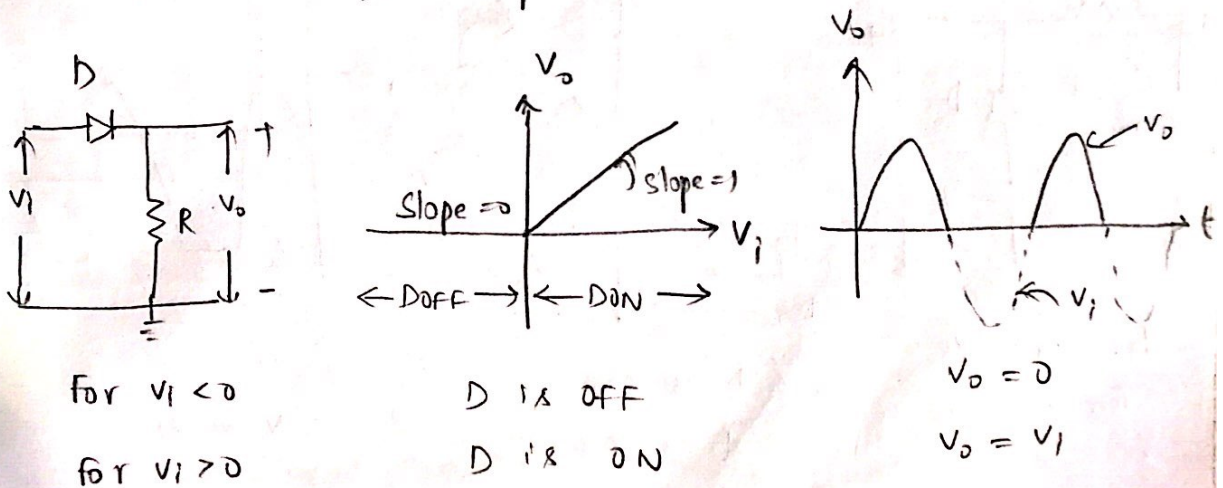 D
Vi
R
Vo
+
-
Vo
Slope = 0
Slope = 1
Vi
← D OFF → ← D ON →
Vo
Vo
t
Vi
For Vi < 0 D is OFF Vo = 0
for Vi > 0 D is ON Vo = Vi